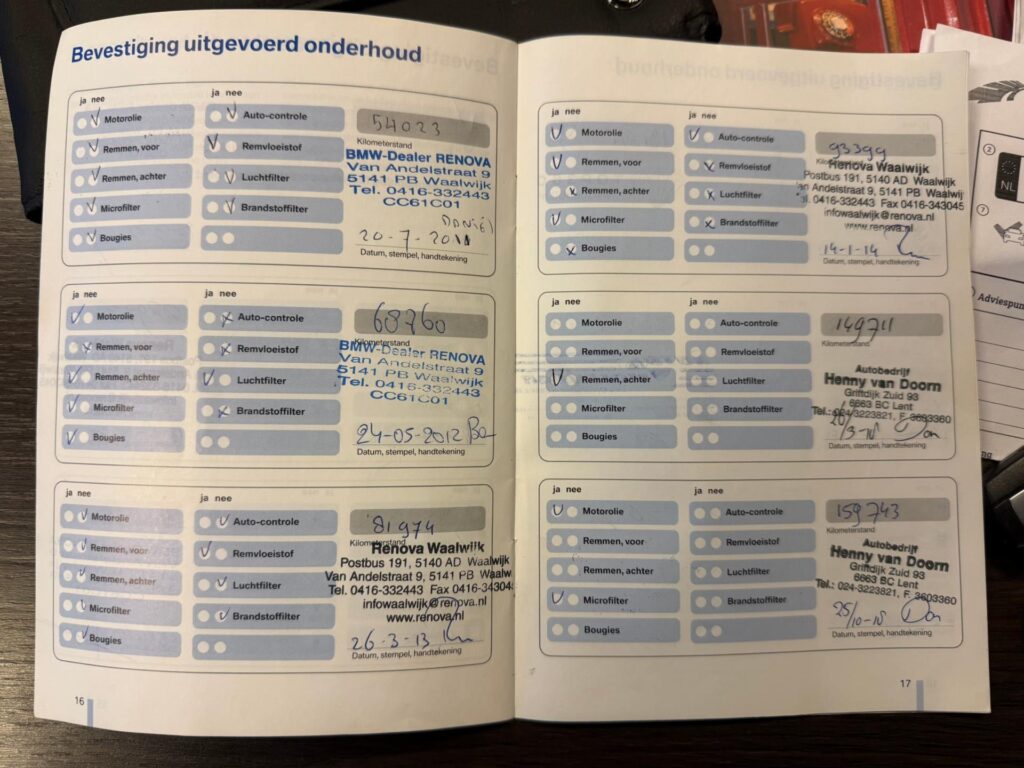 Bevestiging uitgevoerd onderhoud
ja nee
ja nee
Motorolie
Remmen, voor
Remmen, achter
Microfilter
Bougies
Auto-controle
Remvloeistof
Luchtfilter
Brandstoffilter
54023
Kilometerstand
BMW-Dealer RENOVA
Van Andelstraat 9
5141 PB Waalwijk
Tel. 0416-332443
CC61C01
DANIËl
20-7-2011
Datum, stempel, handtekening
ja nee
ja nee
Motorolie
Remmen, voor
Remmen, achter
Microfilter
Bougies
Auto-controle
Remvloeistof
Luchtfilter
Brandstoffilter
68760
Kilometerstand
BMW-Dealer RENOVA
Van Andelstraat 9
5141 PB Waalwijk
Tel. 0416-332443
CC61C01
24-05-2012
Datum, stempel, handtekening
ja nee
ja nee
Motorolie
Remmen, voor
Remmen, achter
Microfilter
Bougies
Auto-controle
Remvloeistof
Luchtfilter
Brandstoffilter
81974
Kilometerstand
Renova Waalwijk
Postbus 191, 5140 AD Waalwijk
Van Andelstraat 9, 5141 PB Waalw
Tel. 0416-332443 Fax 0416-34304
infowaalwijk@renova.nl
www.renova.nl
26-3-13
Datum, stempel, handtekening
16
ja nee
ja nee
Motorolie
Remmen, voor
Remmen, achter
Microfilter
Bougies
Auto-controle
Remvloeistof
Luchtfilter
Brandstoffilter
93399
Renova Waalwijk
Postbus 191, 5140 AD Waalwijk
an Andelstraat 9, 5141 PB Waalwij
el. 0416-332443 Fax 0416-343045
infowaalwijk@renova.nl
www.renova.nl
14-1-14
Datum, stempel, handtekening
ja nee
ja nee
Motorolie
Remmen, voor
Remmen, achter
Microfilter
Bougies
Auto-controle
Remvloeistof
Luchtfilter
Brandstoffilter
149711
Kilometerstand
Autobedrijf
Henny van Doorn
Griftdijk Zuid 93
6663 BC Lent
Tel.: 024-3223821, F. 3603360
Datum, stempel, handtekening
ja nee
ja nee
Motorolie
Remmen, voor
Remmen, achter
Microfilter
Bougies
Auto-controle
Remvloeistof
Luchtfilter
Brandstoffilter
159743
Kilometerstand
Autobedrijf
Henny van Doorn
Griftdijk Zuid 93
6663 BC Lent
Tel.: 024-3223821, F. 3603360
Datum, stempel, handtekening
17
2
NL
7
Adviespun